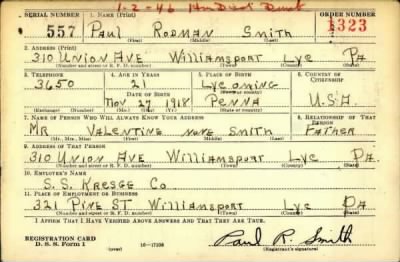 1-2-46
SERIAL NUMBER 1. NAME (Print) ORDER NUMBER
557 Paul Rodman Smith 1323
(First) (Middle) (Last)
2. ADDRESS (Print)
310 Union Ave Williamsport Lyc Pa
(Number and street or R. F. D. number) (Town) (County) (State)
3. TELEPHONE 4. AGE IN YEARS 5. PLACE OF BIRTH 6. COUNTRY OF CITIZENSHIP
3650 21 Lycoming
DATE OF BIRTH
Nov 27 1918 Penna U.S.A.
(Mo.) (Day) (Yr.) (State or country)
7. NAME OF PERSON WHO WILL ALWAYS KNOW YOUR ADDRESS 8. RELATIONSHIP OF THAT PERSON
Mr Valentine none Smith Father
(Mr., Mrs., Miss) (First) (Middle) (Last)
9. ADDRESS OF THAT PERSON
310 Union Ave Williamsport Lyc Pa.
(Number and street or R. F. D. number) (Town) (County) (State)
10. EMPLOYER'S NAME
S.S. Kresge Co
11. PLACE OF EMPLOYMENT OR BUSINESS
321 Pine St Williamsport Lyc Pa
(Number and street or R. F. D. number) (Town) (County) (State)
I AFFIRM THAT I HAVE VERIFIED ABOVE ANSWERS AND THAT THEY ARE TRUE.
REGISTRATION CARD
D. S. S. Form 1 16-17105 Paul R. Smith
(Registrant's signature)